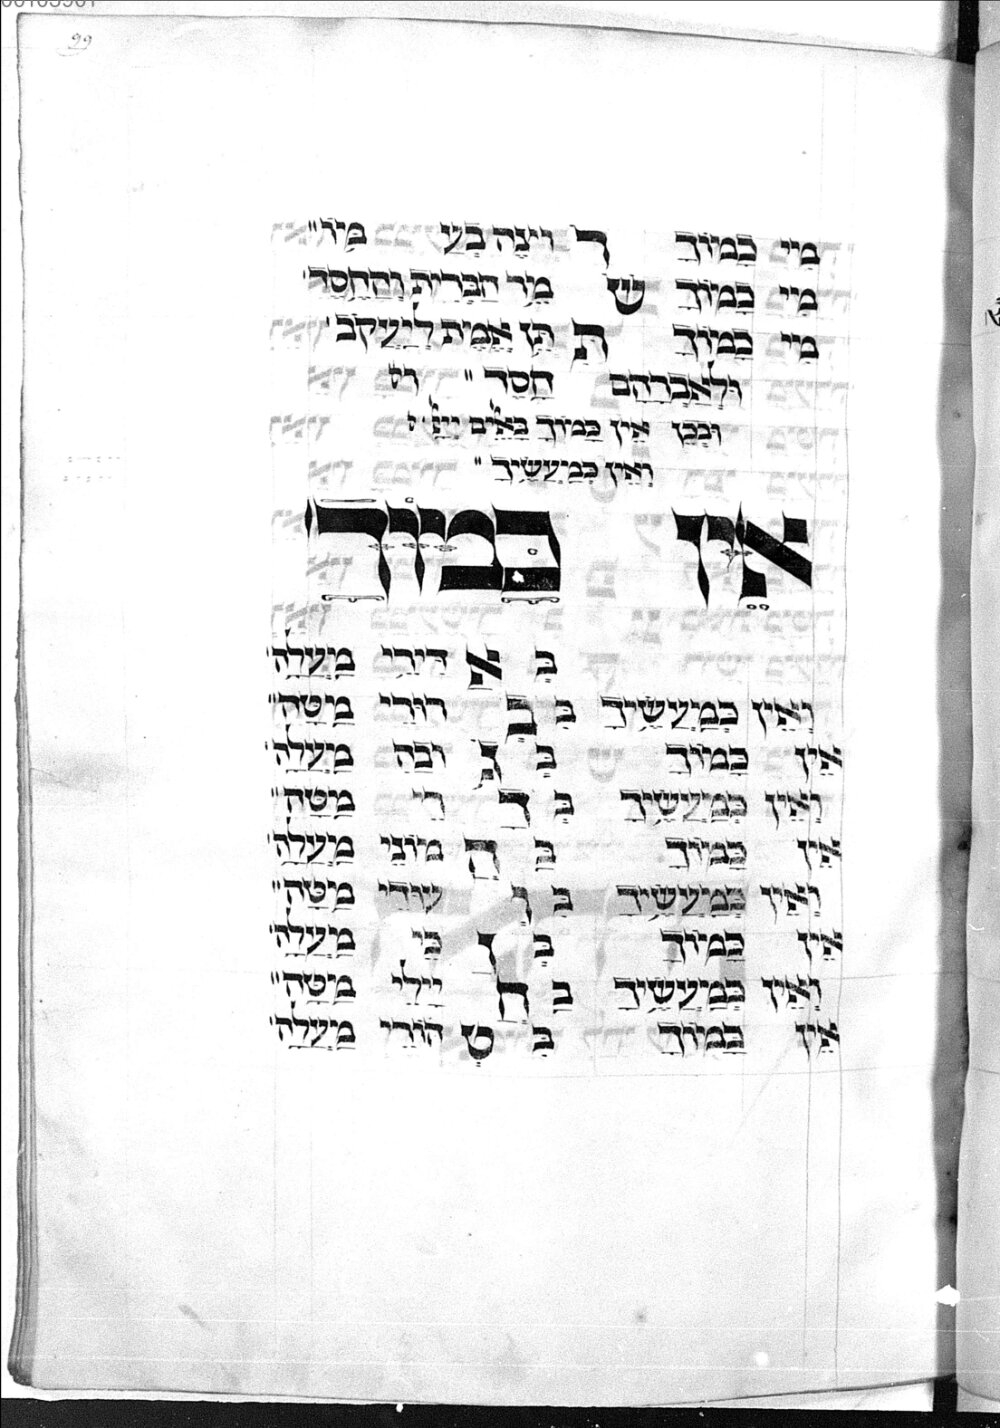 99
מִיי כָּמוֹךָ רוֹצֶה בְעַ׳ מִיו״
מִיי כָּמוֹךָ שׁ מֵר הַבְּרִית וְהַחֶסֶד׳
מִיי כָּמוֹךָ תִּ תֵּן אֱמֶת לְיַעֲקֹב׳
וּלְאַבְרָהָם חֶסֶד״ וׄ
וּבְכֵן אֵין כָּמוֹךָ בָּאֱלִים יְיָ
וְאֵין כְּמַעֲשֶׂיךָ״
אֵין כָּמוֹךָ
בְּ אַ דִּירֵי מַעְלָה׳
וְאֵין כְּמַעֲשֶׂיךָ בְּ בָ חוּרֵי מַטָּה״
אֵין כָּמוֹךָ בְּ ג וֹבַהּ מַעְלָה׳
וְאֵין כְּמַעֲשֶׂיךָ בְּ דָ רֵי מַטָּה״
אֵין כָּמוֹךָ בַּ הֲ מוֹנֵי מַעְלָה׳
וְאֵין כְּמַעֲשֶׂיךָ בְּ ו עוּדֵי מַטָּה״
אֵין כָּמוֹךָ בְּ ז כֵּי מַעְלָה׳
וְאֵין כְּמַעֲשֶׂיךָ בַּ חַ יָילֵי מַטָּה״
אֵין כָּמוֹךָ בִּ טְ הוֹרֵי מַעְלָה׳